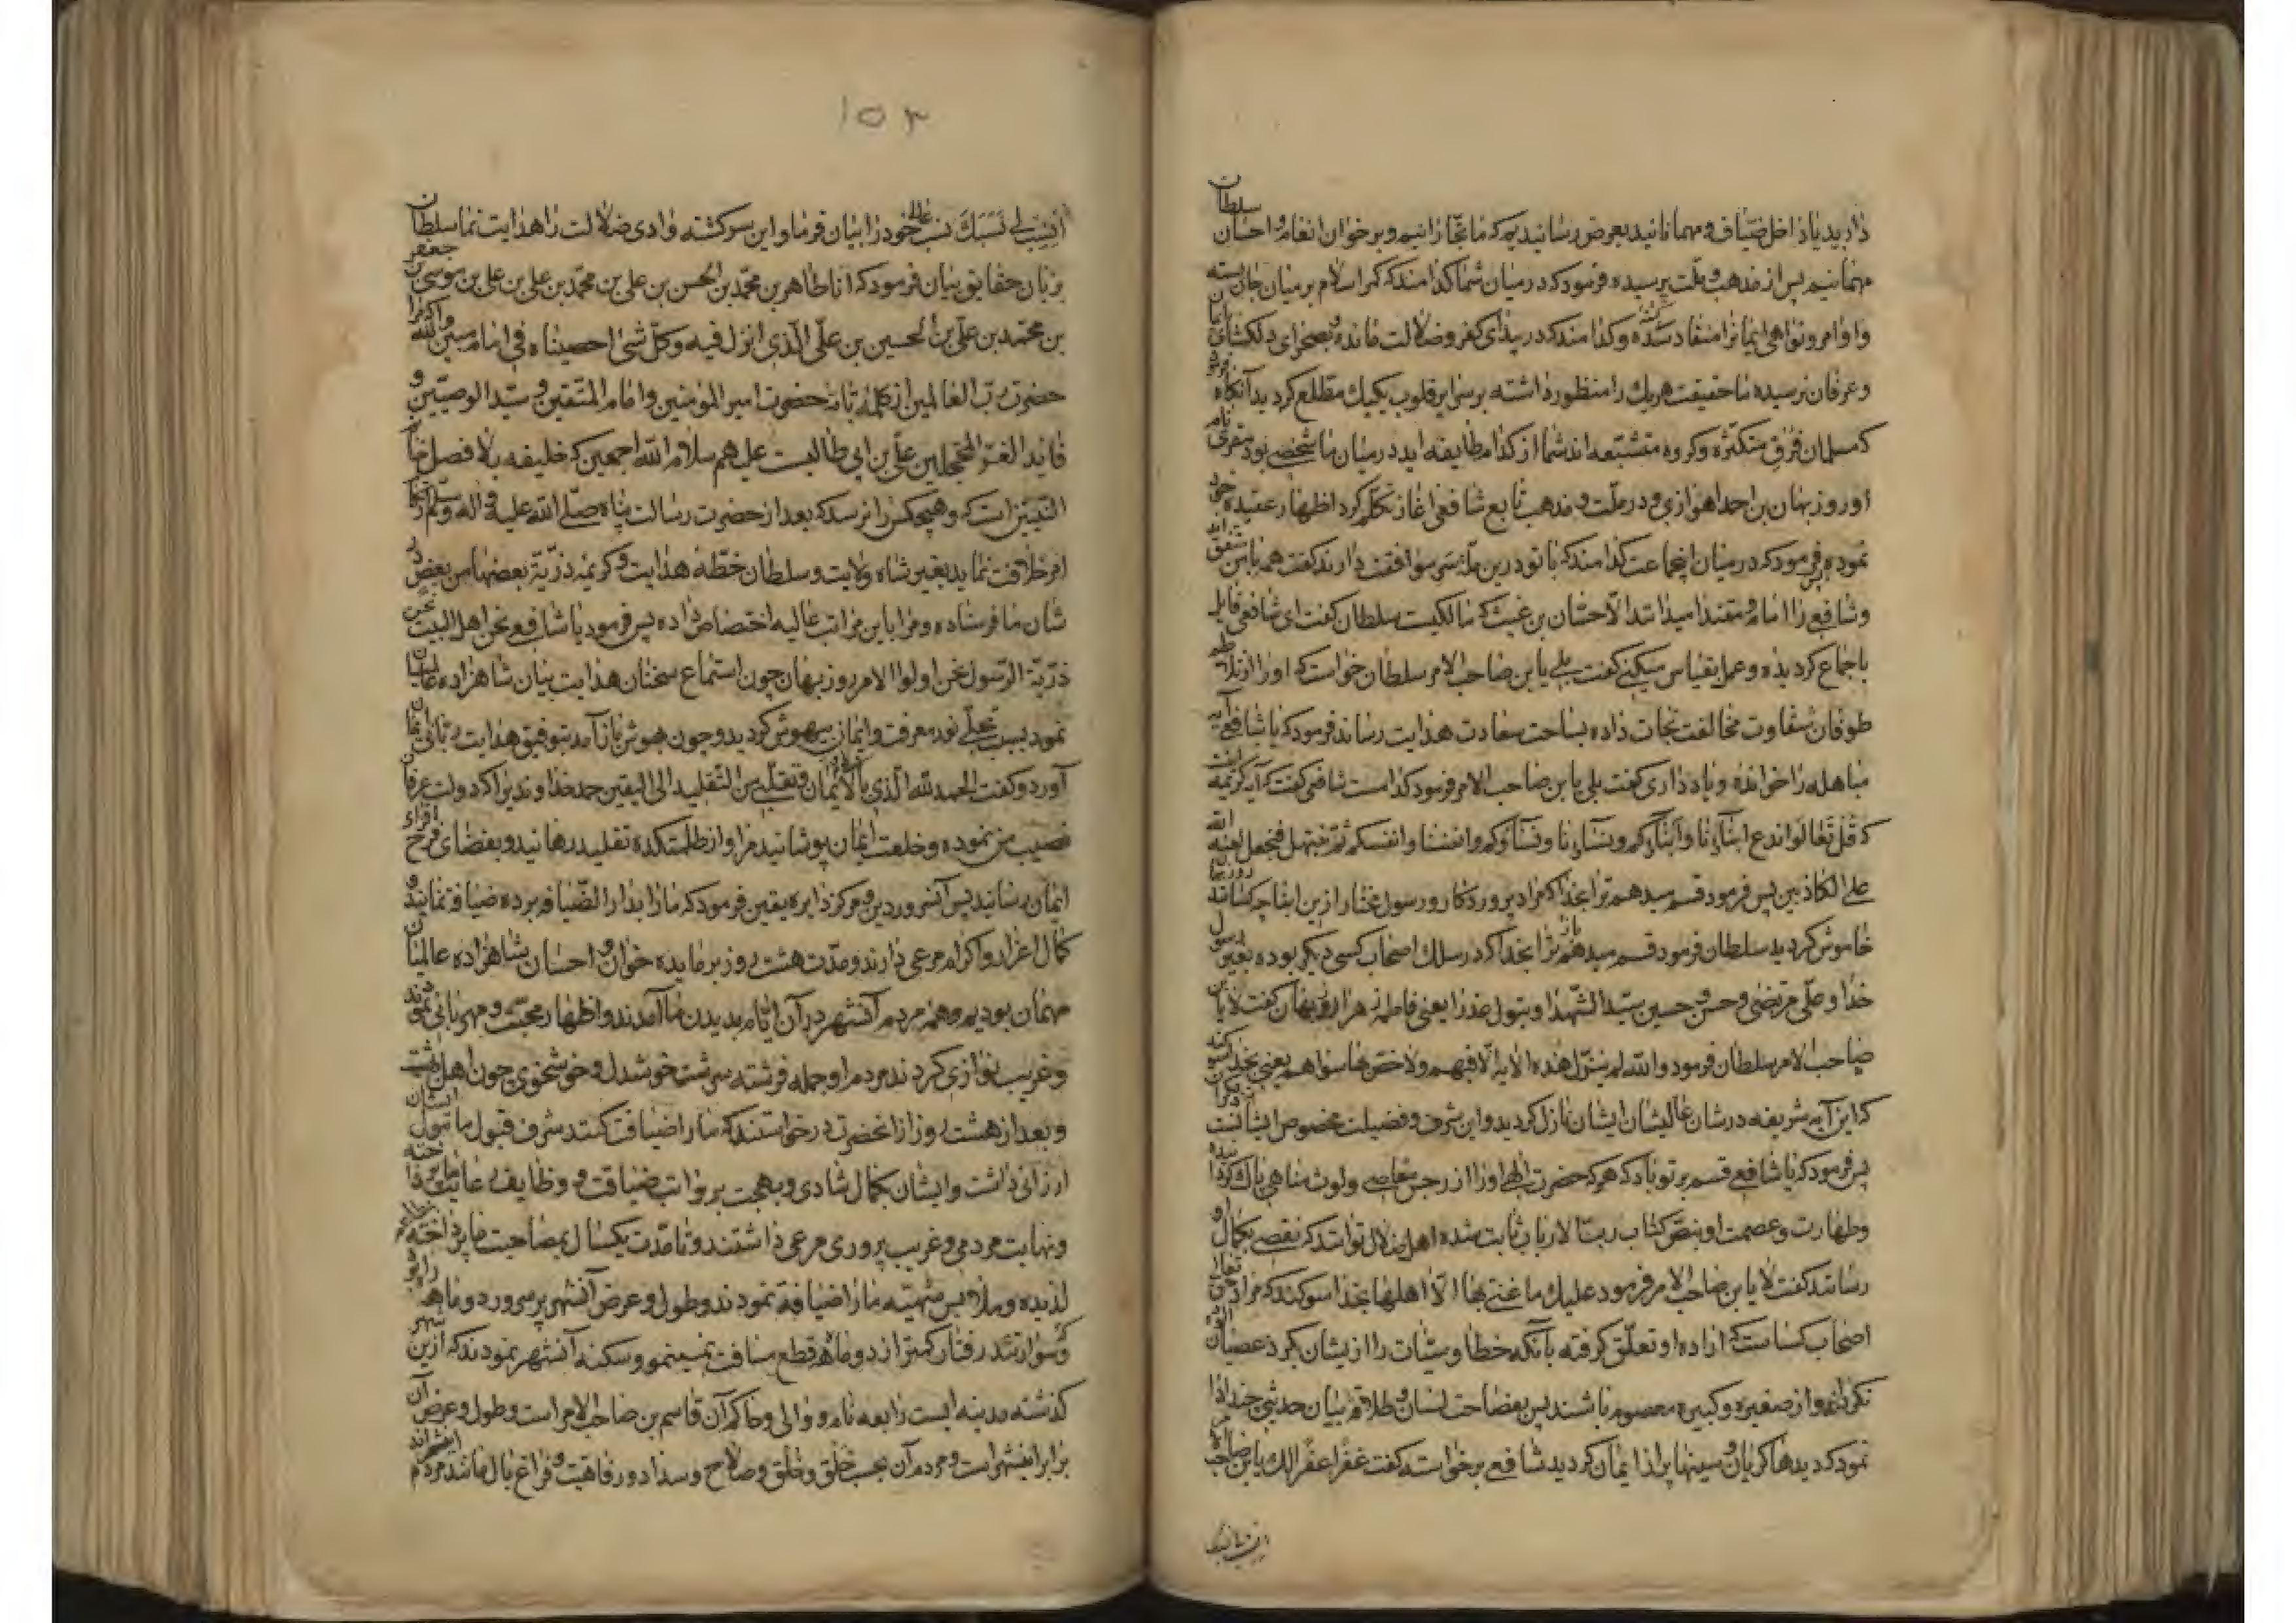 دارید یا داخل ضیاف و مهمانانید بعرض رسانیدیم که ما تجارانیم و بر خوان انعام و احسان سلطان
مهمانیم پس از مذهب و ملت پرسیده فرمود که در میان شما کدامند که کمر اسلام بر میان جان بسته
و اوامر و نواهی ایمانرا منقاد شده و کدامند که در بیدای کفر و ضلالت مانده بصحرای دلکشای ایمان
و عرفان نرسیده تا حقیقت هر یک را منظور داشته بر سرایر قلوب یکیک مطلع کردید آنکاه فرمود
که مسلمان فرق متکثره و کروه متشعبه اند شما از کدام طایفه اید در میان ما شخصی بود مقری نام
او روزبهان بن احمد اهوازی و در ملت و مذهب تابع شافعی آغاز تکلم کرد اظهار عقیده خود
نموده فرمود که در میان اینجماعت کدامند که با تو درین ملت موافقت دارند کفت همه با من متفق اند
و شافعی را امام و مقتدا میدانند الا حسان بن غیث که مالکیست سلطان کفت ای شافعی قایل
باجماع کردیده و عمل بقیاس میکنی کفت بلی یا بن صاحب الامر سلطان خواست که او را از تلاطم
طوفان شقاوت مخالفت نجات داده بساحت سعادت هدایت رساند فرمود که یا شافعی آیه
مباهله را خوانده و یاد داری کفت بلی یا بن صاحب الامر فرمود کدامست شافعی کفت که آیه کریمه اینست
که قل تعالوا ندع ابناءنا و ابناءکم و نساءنا و نساءکم و انفسنا و انفسکم ثم نبتهل فنجعل لعنة الله
علی الکاذبین پس فرمود قسم میدهم ترا بخدا که مراد پروردکار و رسول مختار ازین ابناء چه کسانند روزبهان
خاموش کردید سلطان فرمود قسم میدهم ترا بخدا که در سلک اصحاب کسی دیکر بوده بغیر رسول
خدا و علی مرتضی و حسن و حسین سید الشهدا و بتول عذرا یعنی فاطمه زهرا روزبهان کفت لا یا بن
صاحب الامر سلطان فرمود والله لم ینزل هذه الایة الا فیهم و لا خص بها سواهم یعنی بخدا سوکند
که این آیه شریفه در شان عالیشان ایشان نازل کردید و این شرف و فضیلت مخصوص ایشانست
پس فرمود که یا شافعی قسم بر تو باد که هر که حضرت اله او را از رجس معاصی و لوث مناهی پاک کرد
و طهارت و عصمت او بنص کتاب رب الارباب ثابت شده اهل ضلال توانند که نقصی بکمال او
رسانند کفت لا یا بن صاحب الامر فرمود علیک ما عنی بها الا اهلها بخدا سوکند که مراد حق تعالی
اصحاب کساست که اراده او تعلق کرفته بآنکه خطا و سیئات را ازیشان
نکرداند و از صغیره و کبیره معصوم باشند پس بفصاحت لسان و طلاقت بیان حدیثی چند ادا
نمود که دیدها کریان و سینها پر از ایمان کردید شافعی برخواسته کفت غفرا غفرا لک یا بن صاحب الامر
۱۵۳
انسب لی نسبک نسب عالی خود را بیان فرما و این سرکشته وادی ضلالت را هدایت نما سلطان
بزبان حقایق بیان فرمود که انا طاهر بن محمد بن الحسن بن علی بن محمد بن علی بن علی بن موسی بن جعفر
بن محمد بن علی بن الحسین بن علی الذی انزل فیه و کل شئ احصیناه فی امام مبین والله
حضرت رب العالمین از کلمه تامه حضرت امیر المؤمنین و امام المتقین و سید الوصیین و
قاید الغر المحجلین علی بن ابی طالبست علیهم سلام الله اجمعین که خلیفه بلا فصل خاتم
النبیین است که و هیچکس را نرسد که بعد از حضرت رسالت پناه صلی الله علیه و اله و سلم
امر خلافت نماید بغیر شاه ولایت و سلطان خطه هدایت و کریمه ذریة بعضها من بعض در
شان ما فرستاده و ما را باین مراتب عالیه اختصاص داده پس فرمود یا شافعی نحن اهل البیت نحن
ذریة الرسول نحن اولوا الامر روزبهان چون استماع سخنان هدایت بیان شاهزاده عالمیان
نمود بسبب تجلی نور معرفت و ایمان بیهوش کردید و چون بهوش باز آمد بتوفیق هدایت ربانی ایمان
آورد و کفت الحمد لله الذی بالایمان و نقلنی من التقلید الی الیقین حمد خداوندیرا که دولت عرفان
نصیب من نموده و خلعت ایمان پوشانید مرا و از ظلمتکده تقلید رهانید و بفضای فرح افزای
ایمان رسانید پس آنسرور دین و مرکز دایره یقین فرمود که ما را بدار الضیافه برده ضیافة نمایند و
کمال اعزاز و اکرام مرعی دارند و مدت هشت روز بر مایده خوان احسان شاهزاده عالمیان
مهمان بودیم و همه مردم آنشهر در آن ایام بدیدن ما آمدند و اظهار محبت و مهربانی نمودند
و غریب نوازی کردند مردم او جمله فرشته سرشت خوشدل و خوشخوی چون اهل بهشت
و بعد از هشت روز از انحضرت درخواستند که ما را ضیافت کنند شرف قبول ایشان
ارزانی داشت و ایشان بکمال شادی و بهجت بر مراتب ضیافت و وظایف رعایت
و نهایت مردمی و غریب پروری مرعی داشتند و تا مدت یکسال بمصاحبت ما پرداخته
لذیذه و ملابس متهیئه ما را ضیافة نمودند و طول و عرض آنشهر پر سرور دو ماهه راه بود
و سوار تند رفتار کمتر از دو ماهه قطع مسافت نمینمود و سکنه آنشهر نمودند که ازین شهر
کذشته مدینه ایست رابعه نام و والی و حاکم آن قاسم بن صاحب الامر است و طول و عرض آن
برابر اینشهر است و مردم آن بحسب خلق و خلق و صلاح و سداد و رفاهیت و فراغ بال مانند مردم